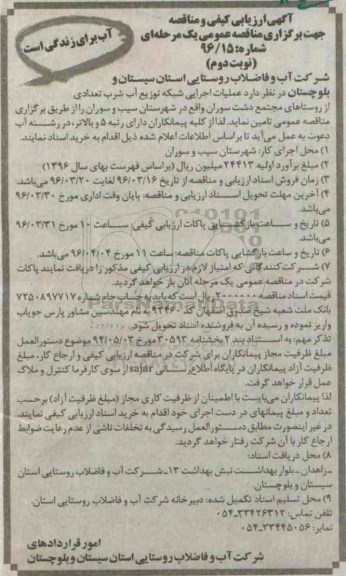 آگهی ارزیابی کیفی و مناقصه
جهت برگزاری مناقصه عمومی یک مرحله‌ای
شماره: ۹۶/۱۵
(نوبت دوم)
آب برای زندگی است
شرکت آب و فاضلاب روستایی استان سیستان و
بلوچستان در نظر دارد عملیات اجرایی شبکه توزیع آب شرب تعدادی
از روستاهای مجتمع دشت سوران واقع در شهرستان سیب و سوران را از طریق برگزاری
مناقصه عمومی تامین نماید. لذا از کلیه پیمانکاران دارای رتبه ۵ و بالاتر، در رشته آب
دعوت به عمل می‌آید تا براساس اطلاعات اعلام شده ذیل اقدام به خرید اسناد نمایند.
۱) محل اجرای کار: شهرستان سیب و سوران
۲) مبلغ برآورد اولیه ۲۴۴۱۳ میلیون ریال (براساس فهرست بهای سال ۱۳۹۶)
۳) زمان فروش اسناد ارزیابی و مناقصه از تاریخ ۹۶/۰۳/۱۶ لغایت ۹۶/۰۳/۲۰ می‌باشد.
۴) آخرین مهلت تحویل اسناد ارزیابی و مناقصه: پایان وقت اداری مورخ ۹۶/۰۳/۳۰
می‌باشد.
۵) تاریخ و ساعت بازگشایی پاکات ارزیابی کیفی: ساعت ۱۰ مورخ ۹۶/۰۳/۳۱
می‌باشد.
۶) تاریخ و ساعت بازگشایی پاکات مناقصه: ساعت ۱۱ مورخ ۹۶/۰۴/۰۴ می‌باشد.
۷) شرکت‌کنندگانی که امتیاز لازم در ارزیابی کیفی مذکور را دریافت نمایند پاکات
شرکت در مناقصه عمومی یک مرحله آنان باز خواهد گردید.
قیمت اسناد مناقصه ریال است که باید به حساب جام شماره ۷۲۵۰۸۹۷۷۱۷
بانک ملت شعبه شیخ صدوق اصفهان کد ۹۳۴۶۰ به نام مهندسین مشاور پارس جویاب
واریز نموده و رسیده آن به فروشنده اسناد تحویل شود.
تذکر مهم: به استناد بند ۲ بخشنامه ۳۰۵۹۲ مورخ ۹۴/۰۵/۰۳ موضوع دستورالعمل
مبلغ ظرفیت مجاز پیمانکاران برای شرکت در مناقصه ارزیابی کیفی و ارجاع کار، مبلغ
ظرفیت آزاد پیمانکاران در پایگاه اطلاع‌رسانی sajar از سوی کارفرما کنترل و ملاک
عمل قرار خواهد گرفت.
لذا پیمانکاران می‌بایست با اطمینان از ظرفیت کاری مجاز (مبلغ ظرفیت آزاد) برحسب
تعداد و مبلغ پیمانهای در دست اجرای خود اقدام به خرید اسناد ارزیابی کیفی نمایند.
در غیر اینصورت مطابق دستورالعمل رسیدگی به تخلفات ناشی از عدم رعایت ضوابط
ارجاع کار با آن شرکت رفتار خواهد گردید.
۸) محل دریافت اسناد:
-زاهدان- بلوار بهداشت نبش بهداشت ۱۳- شرکت آب و فاضلاب روستایی استان
سیستان و بلوچستان
۹) محل تسلیم اسناد تکمیل شده: دبیرخانه شرکت آب و فاضلاب روستایی استان.
تلفن تماس: ۳۳۴۲۶۳۱۲-۰۵۴
نمابر: ۳۳۴۴۵۰۵۶-۰۵۴
امور قراردادهای
شرکت آب و فاضلاب روستایی استان سیستان و بلوچستان